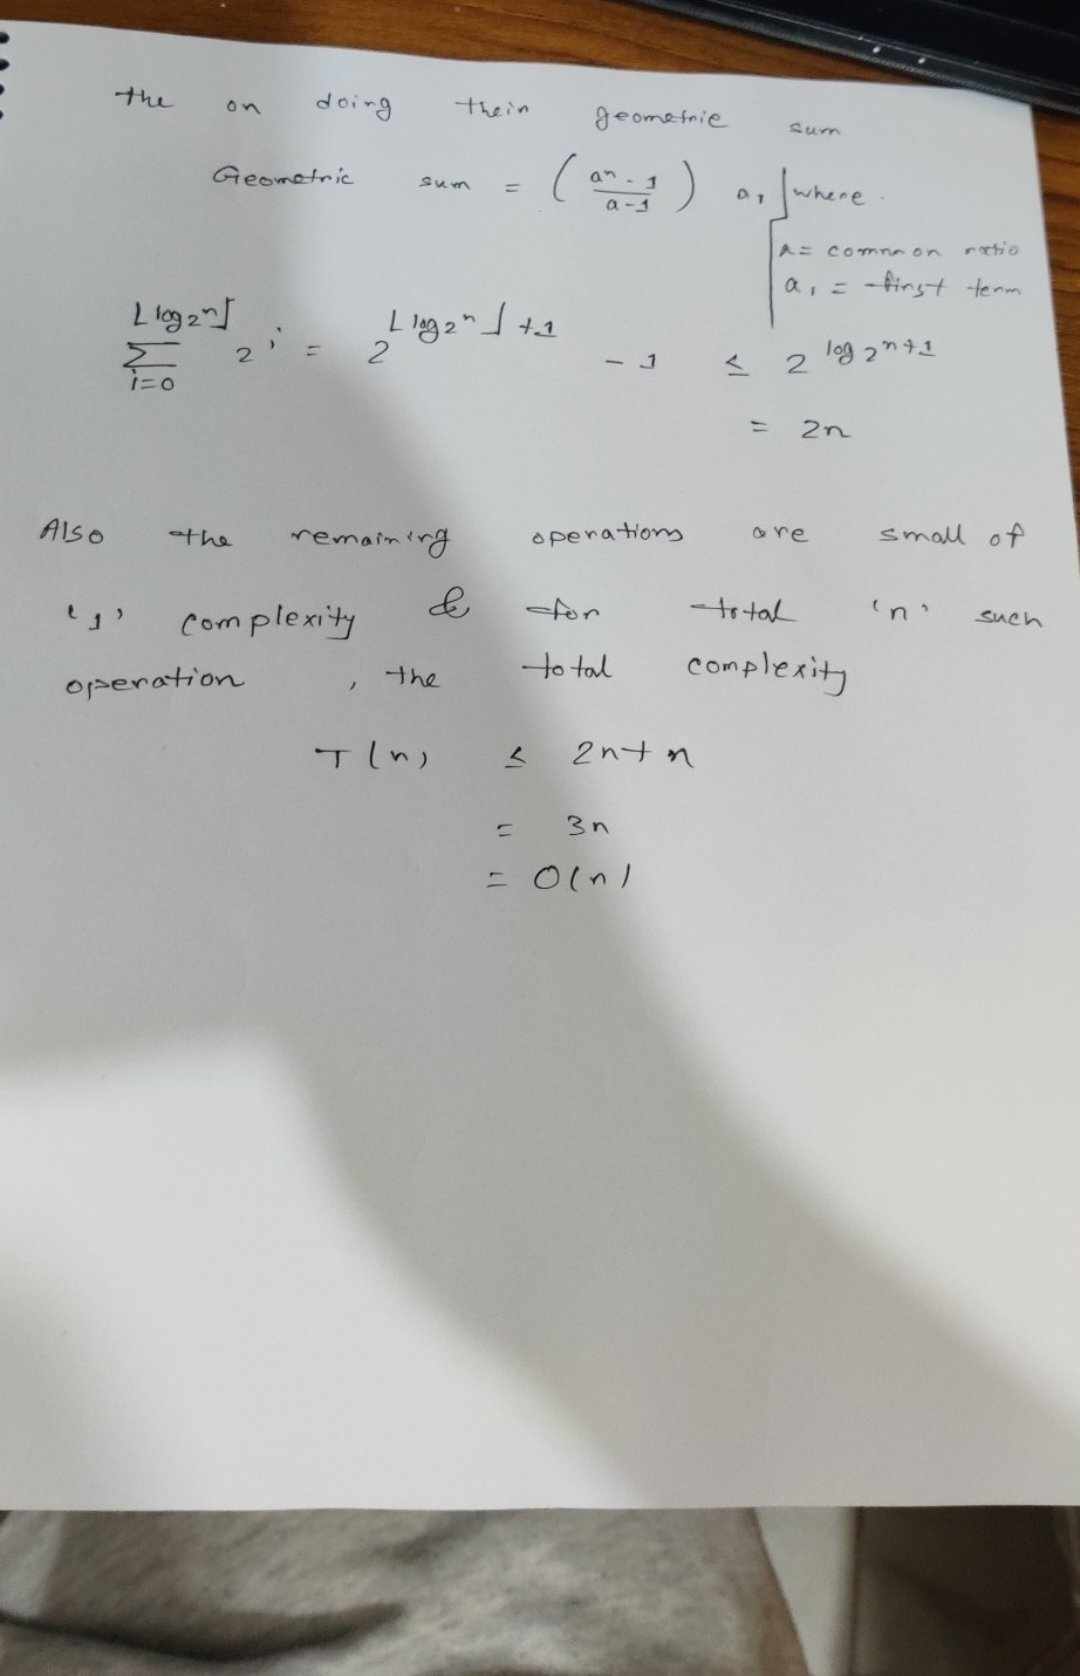 the on doing thein geometric sum
Geometric sum = ( aⁿ - 1 / a - 1 ) a₁ where
a = common ratio
a₁ = first term
∑_{i=0}^{⌊log₂n⌋} 2^i = 2^{⌊log₂n⌋ + 1} - 1 ≤ 2^{log₂n + 1}
= 2n
Also the remaining operations are small of
'1' complexity & for total 'n' such
operation , the total complexity
T(n) ≤ 2n + n
= 3n
= O(n)